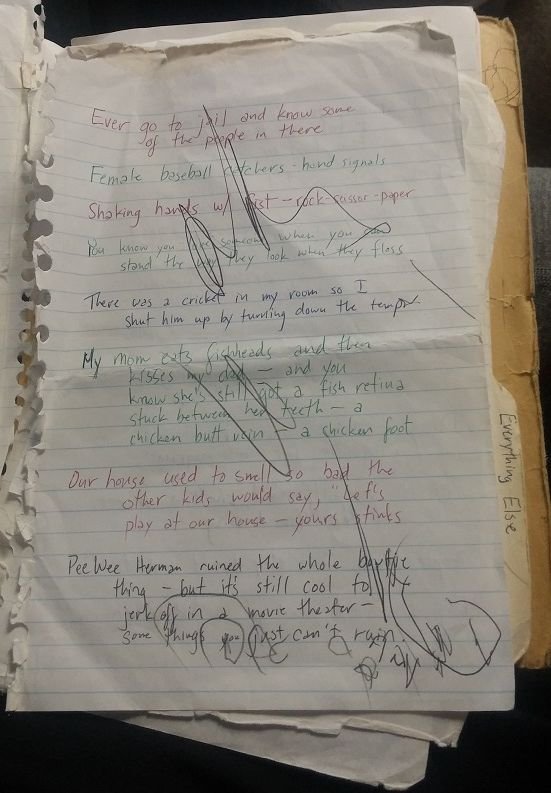 Ever go to jail and know some
of the people in there
Female baseball catchers - hand signals
Shaking hands w/ fist - rock-sassor-paper
You know you like someone when you can
stand the way they look when they floss
There was a cricket in my room so I
shut him up by turning down the temp
My mom eats fishheads and then
kisses my dad - and you
know she's still got a fish retina
stuck between her teeth - a
chicken butt vein - a chicken foot
Our house used to smell so bad the
other kids would say, "Let's
play at our house - yours stinks
Pee Wee Herman ruined the whole
thing - but it's still cool to
jerk off in a movie theater -
some things you just can't ruin.
Everything Else